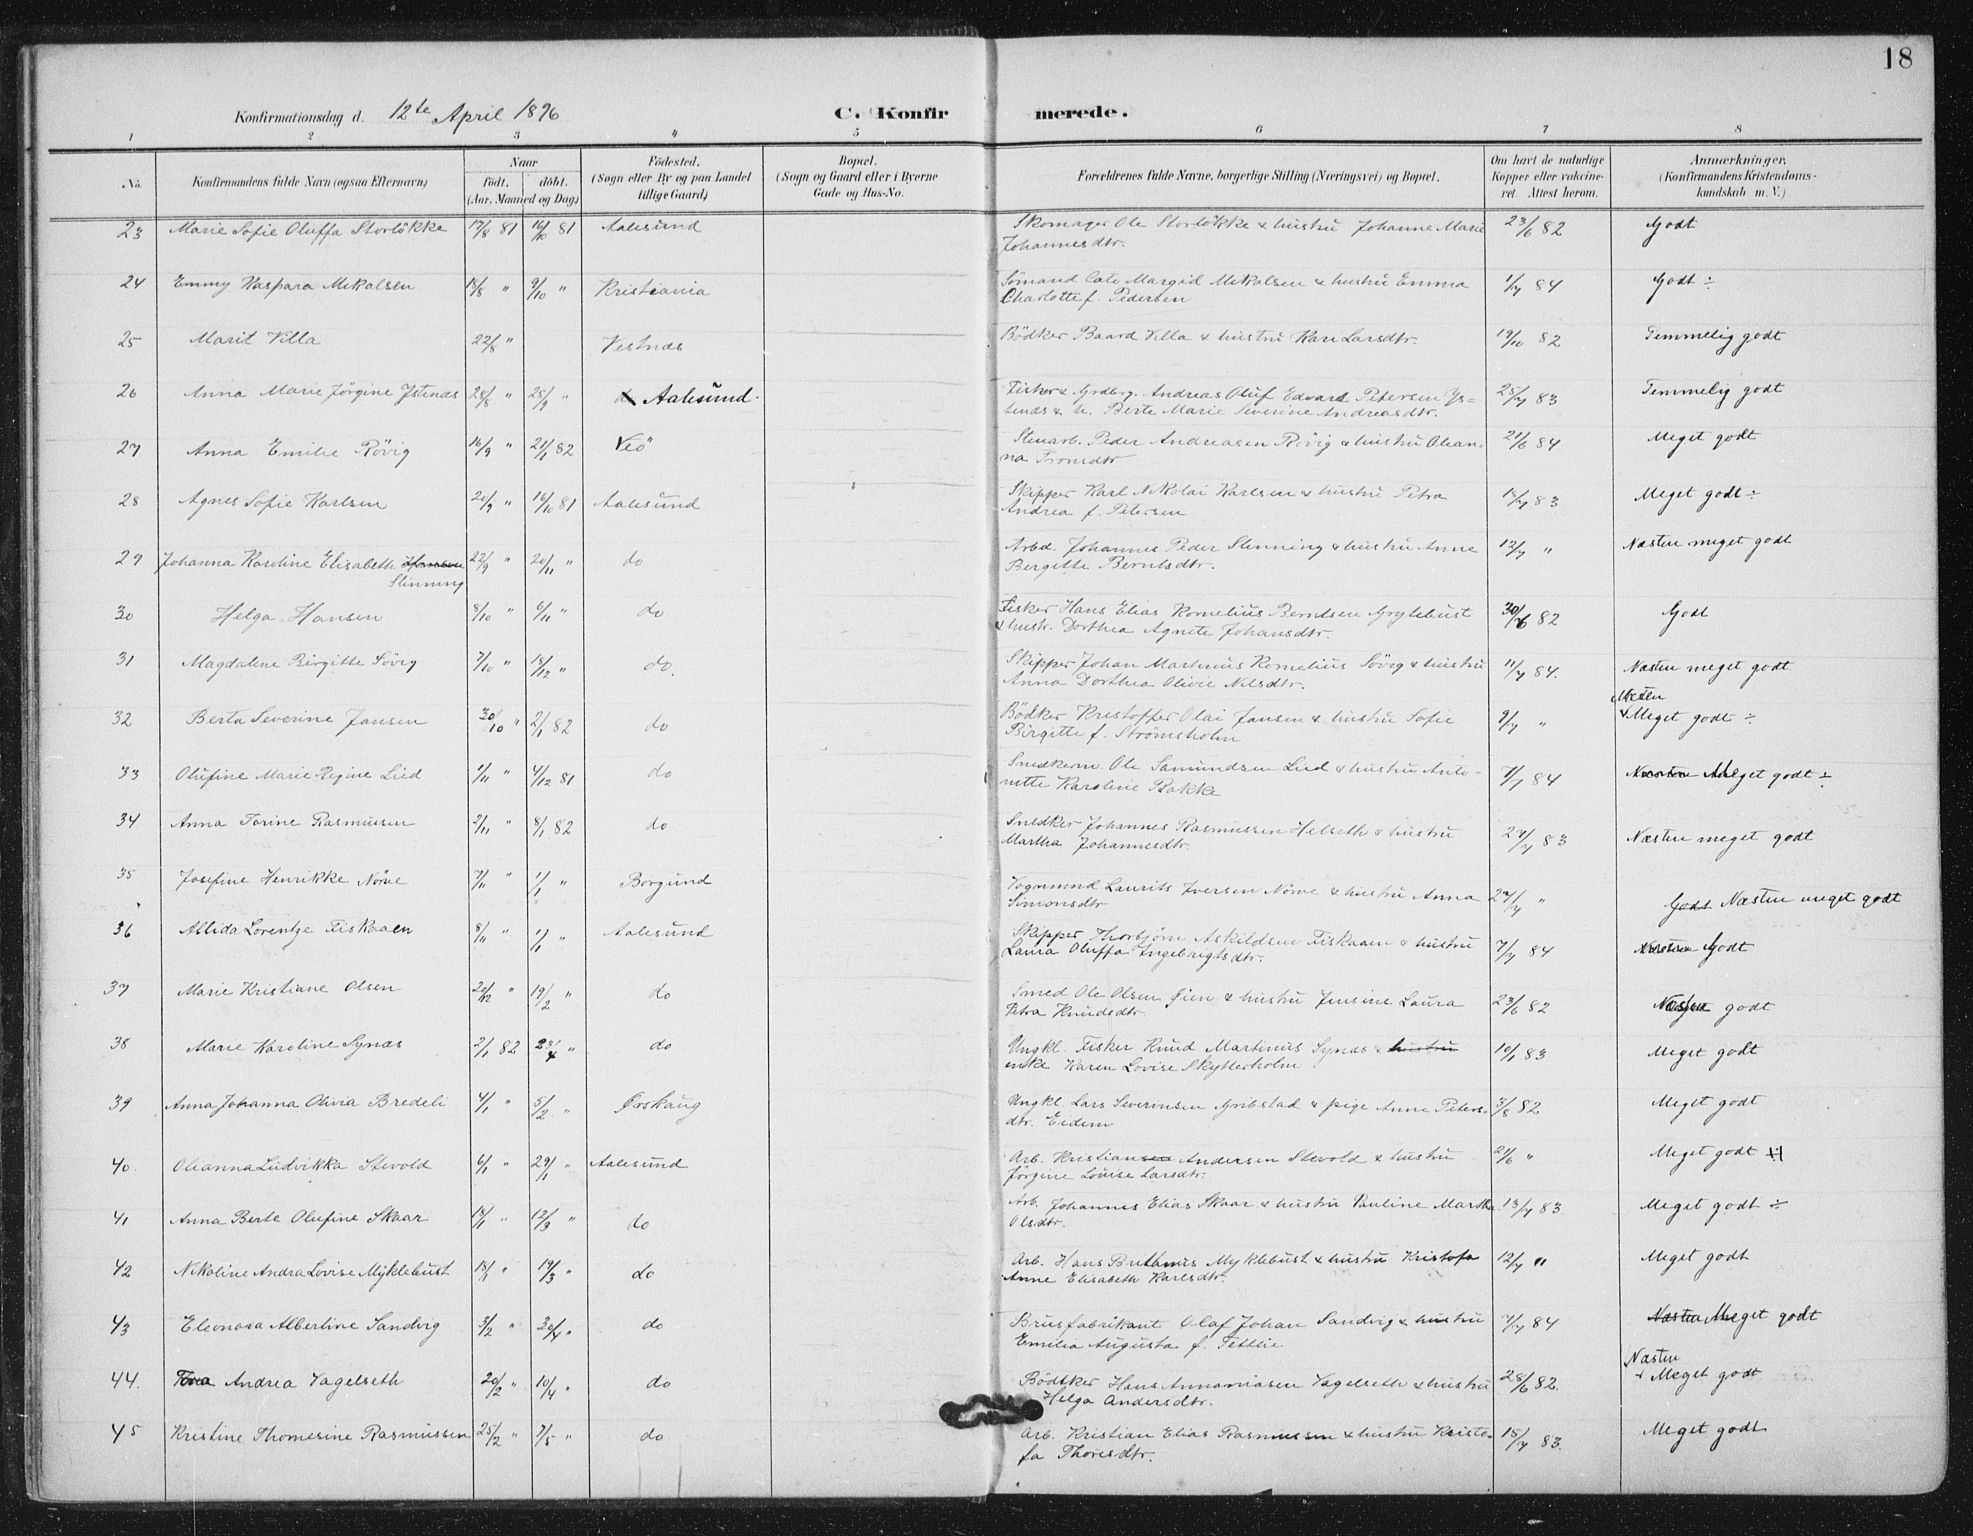 18
Konfirmationsdag d. 12te April 1896
C. Konfir merede.
1 2 3 4 5 6 7 8
No. Konfirmandens fulde Navn (ogsaa Efternavn) Naar født. døbt. (Aar. Maaned og Dag) Fødested. (Sogn eller By og paa Landet tillige Gaard) Bopæl. (Sogn og Gaard eller i Byerne Gade og Hus-No. Forældrenes fulde Navne, borgerlige Stilling (Næringsvei) og Bopæl. Om havt de naturlige Kopper eller vakcineret. Attest herom. Anmærkninger. (Konfirmandens Kristendomskundskab m. V.)
23 Marie Sofie Oluffa Storlökke 17/8 81 16/10 81 Aalesund Skomager Ole Storlökke & hustru Johanne Marie 23/6 82 Godt
Johannesdtr.
24 Emmy Kaspara Mikalsen 18/8 " 9/10 " Kristiania Sömand Cato Margid Mikalsen & hustru Emma 1/7 84 Godt ÷
Charlotte f. Pedersen
25 Marit Villa 22/8 " Vestnæs Bödker Baard Villa & hustru Kari Larsdtr. 19/10 82 Temmelig godt
26 Anna Marie Jörgine Ystenæs 28/8 " 25/9 " Aalesund. Fisker & Grdbrg. Andreas Oluf Edvard Petersen Ys- 25/7 83 Temmelig godt
tenæs & h. Berte Marie Severine Andreasdtr.
27 Anna Emilie Rövig 16/9 " 21/1 82 Veö Stenarb. Peder Andreasen Rövig & hustru Olean- 21/6 84 Meget godt
na Tronsdtr
28 Agnes Sofie Karlsen 20/9 " 16/10 81 Aalesund Skipper Karl Nikolai Karlsen & hustru Petra 18/7 83 Meget godt ÷
Andrea f. Petersen
29 Johanna Karoline Elisabeth 22/9 " 20/11 " do Arbd. Johannes Peder Slinning & hustru Anne 12/7 " Næsten meget godt
Slinning Bergitte Berntsdtr.
30 Helga Hansen 8/10 " 6/11 " do Fisker Hans Elias Kornelius Berntsen Grytebust 30/6 82 Godt
& hustr. Dorthea Agnete Johansdtr.
31 Magdaline Birgitte Sövig 7/10 " 18/12 " do. Skipper Johan Martinus Kornelius Sövig & hustru 11/7 84. Næsten meget godt
Anna Dorthea Olivie Nilsdtr.
Næsten
32 Berta Severine Jansen 30/10 " 2/1 82 do Bödker Kristoffer Olai Jansen & hustru Sofie 9/7 " Meget godt ÷
Birgitte f. Strömsholm
33 Olufine Marie Regine Lied 1/11 " 4/12 81 do Snedkerm. Ole Samundsen Lied & hustru Anto- 7/7 84 Næsten Meget godt ÷
nette Karoline Bakke
34 Anna Torine Rasmussen 2/11 " 8/1 82 do Snedker Johannes Rasmussen Helseth & hustru 27/7 83 Næsten meget godt
Martha Johannesdtr.
35 Josefine Henrikke Nörve 7/11 " 1/1 " Borgund Vognmnd Laurits Iversen Nörve & hustru Anna 27/7 " Godt Næsten meget godt
Simonsdtr
36 Allida Lorentze Fiskaaen 8/11 " 1/1 " Aalesund Skipper Thorbjörn Askildsen Fiskaaen & hustru 7/7 84 Næsten Godt
Laura Oluffa Ingebrigtsdtr.
37 Marie Kristiane Olsen 20/12 " 19/2 " do Smed Ole Olsen Øien & hustru Jensine Laura 23/6 82 Næsten godt
Petra Knudsdtr.
38 Marie Karoline Synæs 2/1 82 23/4 " do Ungkl. Fisker Knud Martinus Synæs & hustru 10/1 83 Meget godt
enke Karen Lovise Skytterholm
39 Anna Johanna Olivia Bredeli 4/1 " 5/2 " Ørskaug Ungkl. Lars Severinsen Gribstad & pige Anne Peters- 3/8 82 Meget godt
dtr. Eidem
40. Olianna Ludvikka Stevold 6/1 " 29/1 " Aalesund Arb. Kristiansen Andersen Stevold & hustru 21/6 " Meget godt
Jörgine Louise Larsdtr.
41 Anna Berte Olufine Skaar 13/1 " 12/3 " do Arb. Johannes Elias Skaar & hustru Pauline Martha 13/7 83. Meget godt ÷
Olsdtr.
42 Nikoline Andra Lovise Myklebust 18/1 " 19/3 " do Arb. Hans Myklebust & hustru Kristofa 12/7 " Meget godt
Anne Elisabeth Karlsdtr.
43 Eleonora Albertine Sandvig 3/2 " 30/4 " do Brusfabrikant Olaf Johan Sandvig & hustru 7/7 84 Næsten Meget godt
Emilia Augusta f. Fettlie
Næsten
44. Tora Andrea Vagelseth 20/2 " 10/4 " do Bödtker Hans Annaniasen Vagelseth & hustru 28/6 82. Meget godt
Helga Andersdtr.
45 Kristine Thomesine Rasmussen 25/2 " 7/5 " do Arb. Kristian Elias Rasmussen & hustru Kristo- 18/7 83. Meget godt
fa Thoresdtr.